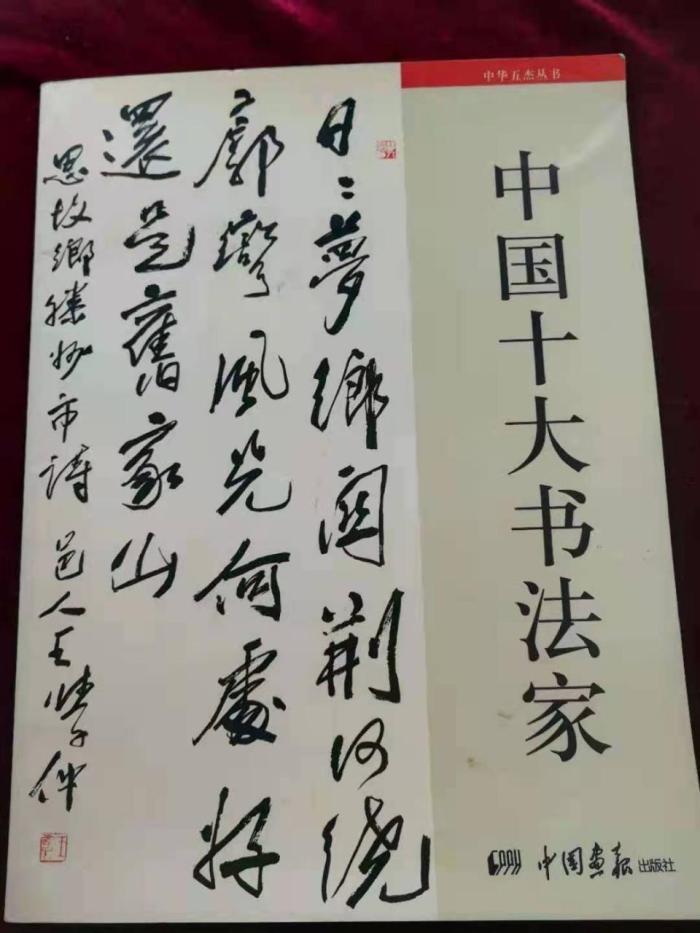 中华五杰丛书
中国十大书法家
中国画报出版社
日〻夢鄉関荆河繞
廓彎風光何處好
還是舊家山
思故鄉滕州市詩 邑人王學仲